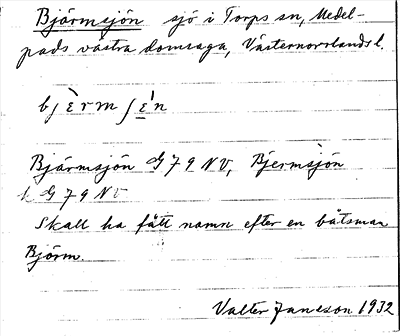 Bjärmsjön sjö i Torps sn, Medel-
pads västra domsaga, Västernorrlands l.
bjèrmʃén
Bjärmsjön G79NV, Bjermsjön
k G79NV
Skall ha fått namn efter en båtsman
Björm.
Valter Jansson 1932